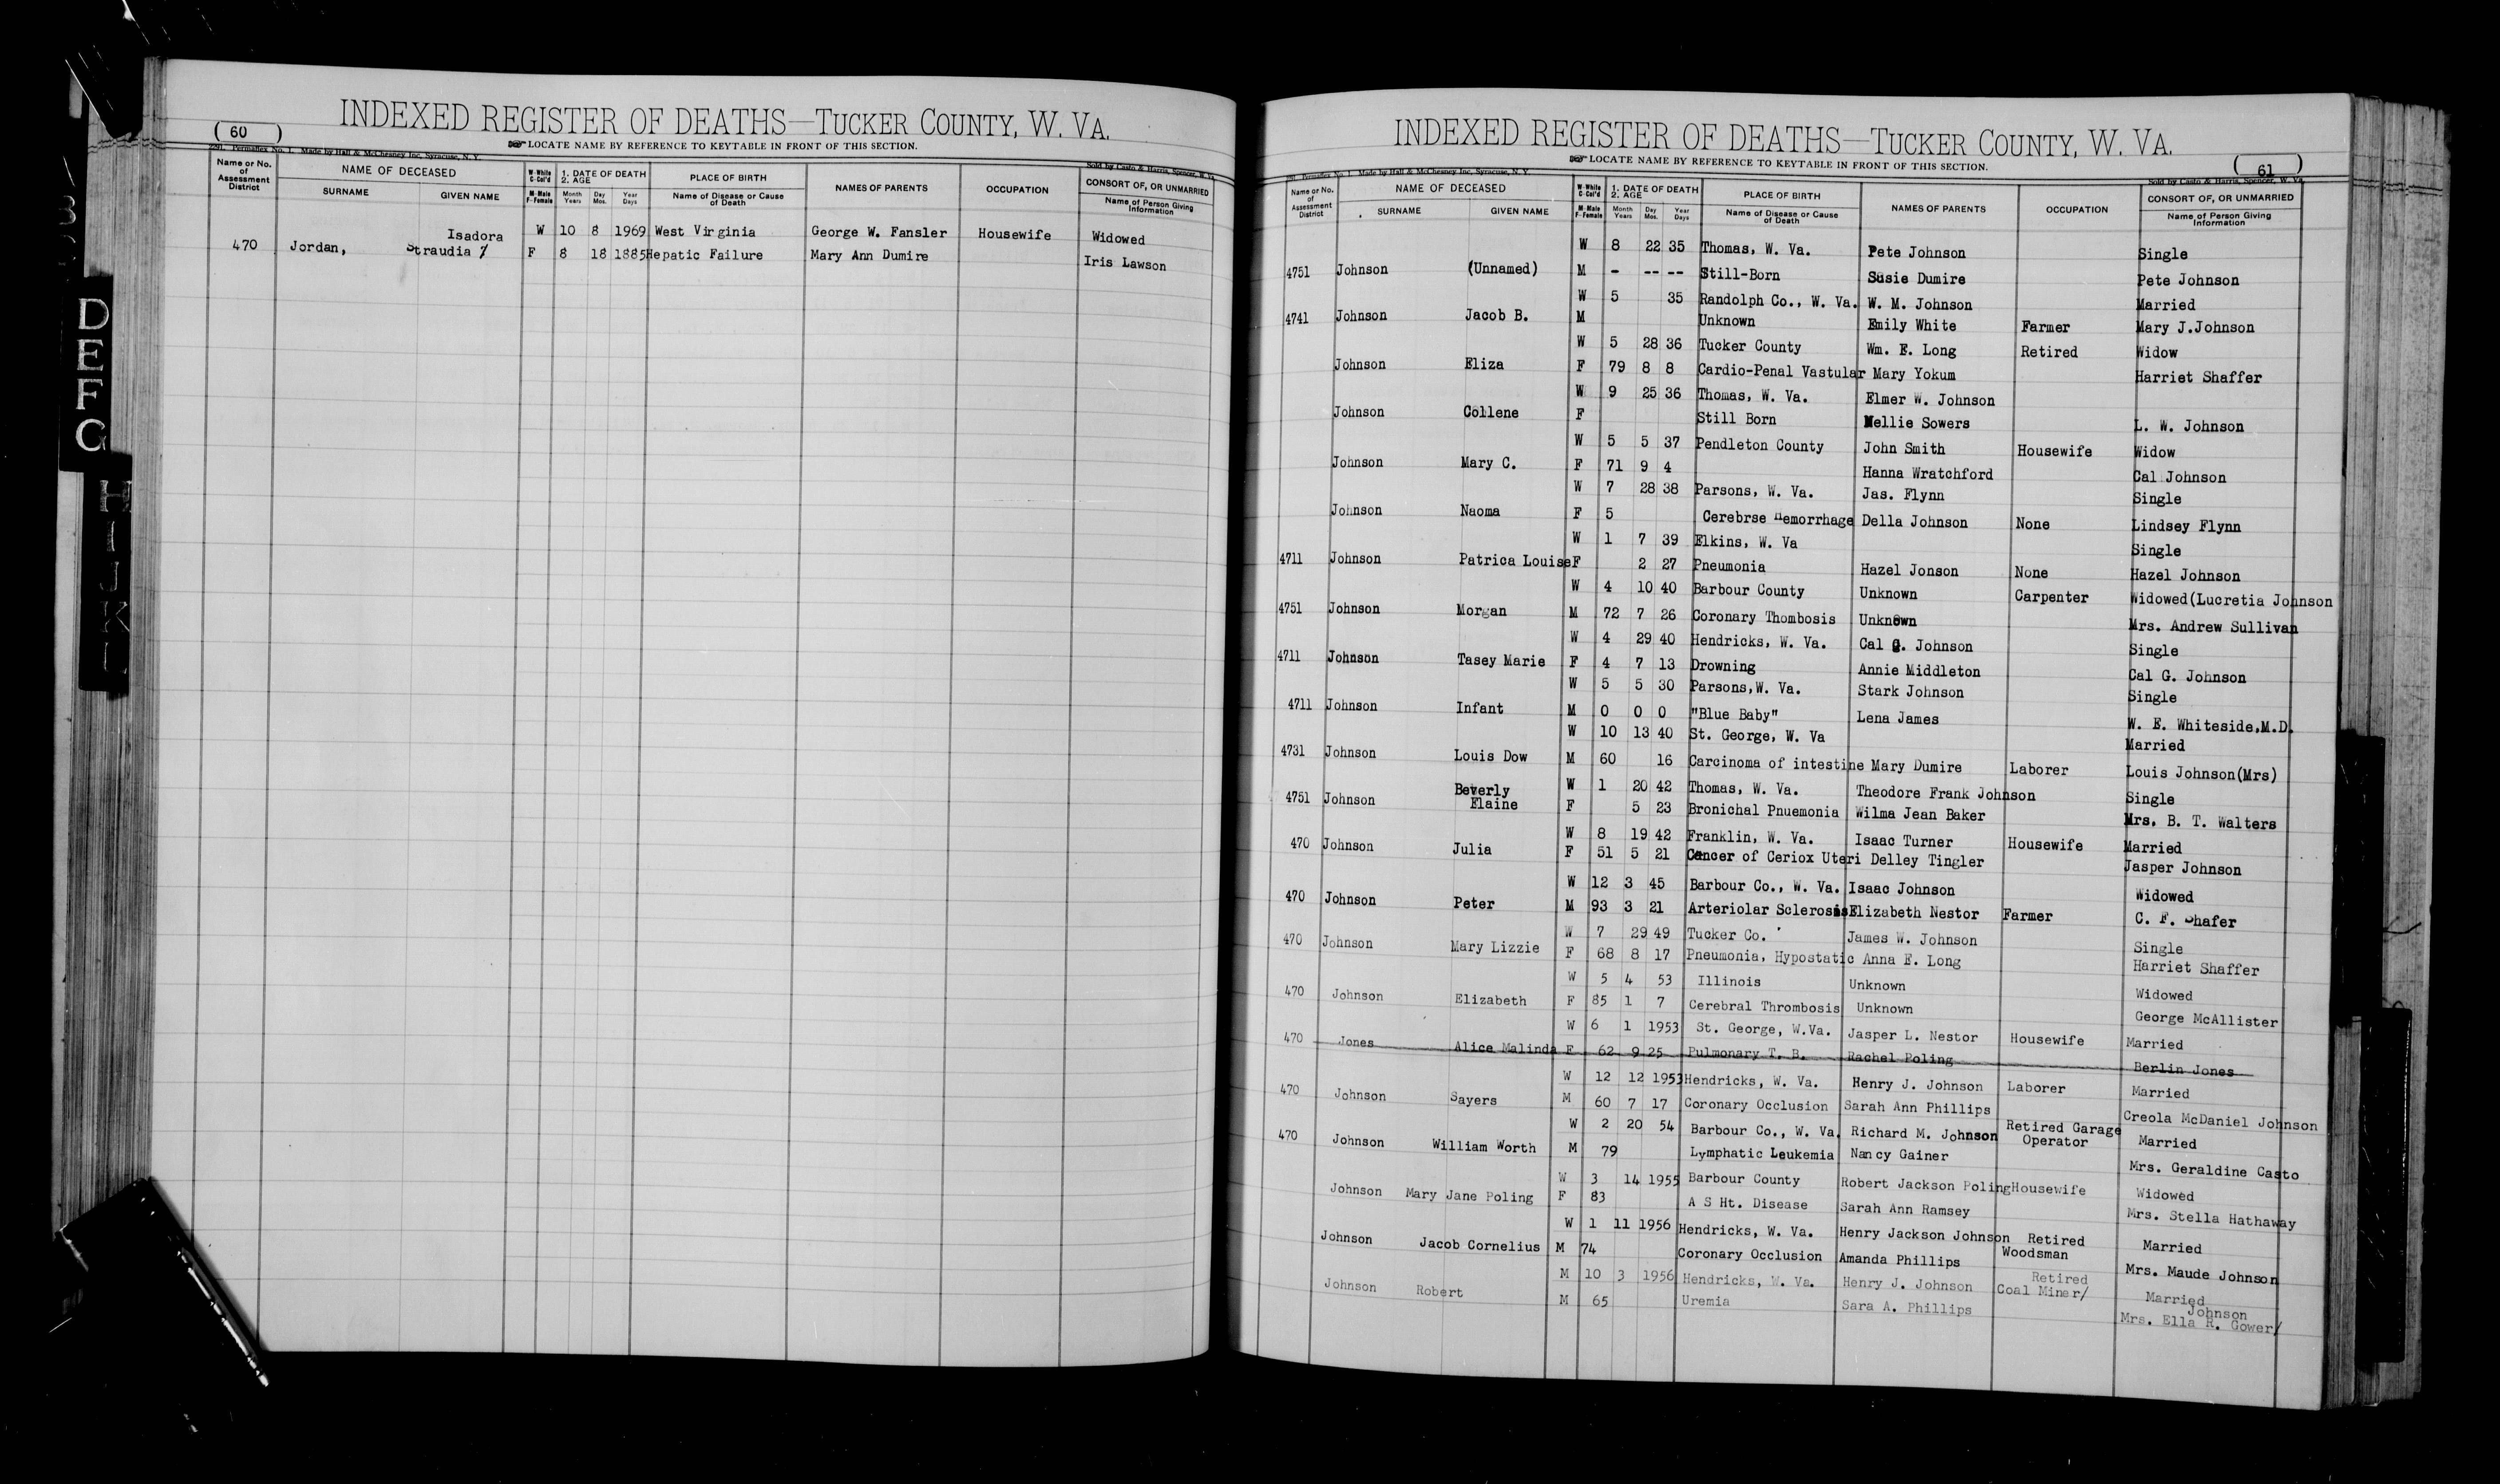 INDEXED REGISTER OF DEATHS—TUCKER COUNTY, W. VA.
( 60 )
LOCATE NAME BY REFERENCE TO KEYTABLE IN FRONT OF THIS SECTION.
Made by Hall & McChesney Inc, Syracuse, N. Y.
Sold by Casto & Harris, Spencer, W. Va.
Name or No. of Assessment District
NAME OF DECEASED
SURNAME GIVEN NAME
W-White C-Col'd M-Male F-Female
1. DATE OF DEATH 2. AGE
Month Years Day Mos. Year Days
PLACE OF BIRTH
Name of Disease or Cause of Death
NAMES OF PARENTS
OCCUPATION
CONSORT OF, OR UNMARRIED
Name of Person Giving Information
Isadora W 10 8 1969 West Virginia George W. Fansler Housewife Widowed
470 Jordan, Straudia / F 8 18 1885 Hepatic Failure Mary Ann Dumire Iris Lawson
D
E
F
G
H
I
J
K
L
INDEXED REGISTER OF DEATHS—TUCKER COUNTY, W. VA.
LOCATE NAME BY REFERENCE TO KEYTABLE IN FRONT OF THIS SECTION.
( 61 )
Made by Hall & McChesney Inc, Syracuse, N. Y.
Sold by Casto & Harris, Spencer, W. Va.
Name or No. of Assessment District
NAME OF DECEASED
SURNAME GIVEN NAME
W-White C-Col'd M-Male F-Female
1. DATE OF DEATH 2. AGE
Month Years Day Mos. Year Days
PLACE OF BIRTH
Name of Disease or Cause of Death
NAMES OF PARENTS
OCCUPATION
CONSORT OF, OR UNMARRIED
Name of Person Giving Information
W 8 22 35 Thomas, W. Va. Pete Johnson Single
4751 Johnson (Unnamed) M - -- -- Still-Born Susie Dumire Pete Johnson
W 5 35 Randolph Co., W. Va. W. M. Johnson Married
4741 Johnson Jacob B. M Unknown Emily White Farmer Mary J.Johnson
W 5 28 36 Tucker County Wm. E. Long Retired Widow
Johnson Eliza F 79 8 8 Cardio-Penal Vastular Mary Yokum Harriet Shaffer
W 9 25 36 Thomas, W. Va. Elmer W. Johnson
Johnson Collene F Still Born Nellie Sowers L. W. Johnson
W 5 5 37 Pendleton County John Smith Housewife Widow
Johnson Mary C. F 71 9 4 Hanna Wratchford Cal Johnson
W 7 28 38 Parsons, W. Va. Jas. Flynn Single
Johnson Naoma F 5 Cerebrse Hemorrhage Della Johnson None Lindsey Flynn
W 1 7 39 Elkins, W. Va Single
4711 Johnson Patrica Louise F 2 27 Pneumonia Hazel Jonson None Hazel Johnson
W 4 10 40 Barbour County Unknown Carpenter Widowed(Lucretia Johnson
4751 Johnson Morgan M 72 7 26 Coronary Thombosis Unknown Mrs. Andrew Sullivan
W 4 29 40 Hendricks, W. Va. Cal G. Johnson Single
4711 Johnson Tasey Marie F 4 7 13 Drowning Annie Middleton Cal G. Johnson
W 5 5 30 Parsons,W. Va. Stark Johnson Single
4711 Johnson Infant M 0 0 0 "Blue Baby" Lena James W. E. Whiteside,M.D.
W 10 13 40 St. George, W. Va Married
4731 Johnson Louis Dow M 60 16 Carcinoma of intestine Mary Dumire Laborer Louis Johnson(Mrs)
Beverly W 1 20 42 Thomas, W. Va. Theodore Frank Johnson Single
4751 Johnson Elaine F 5 23 Bronichal Pnuemonia Wilma Jean Baker Mrs. B. T. Walters
W 8 19 42 Franklin, W. Va. Isaac Turner Housewife Married
470 Johnson Julia F 51 5 21 Cancer of Ceriox Uteri Delley Tingler Jasper Johnson
W 12 3 45 Barbour Co., W. Va. Isaac Johnson Widowed
470 Johnson Peter M 93 3 21 Arteriolar Sclerosis Elizabeth Nestor Farmer C. F. Shafer
W 7 29 49 Tucker Co. James W. Johnson Single
470 Johnson Mary Lizzie F 68 8 17 Pneumonia, Hypostatic Anna E. Long Harriet Shaffer
W 5 4 53 Illinois Unknown Widowed
470 Johnson Elizabeth F 85 1 7 Cerebral Thrombosis Unknown George McAllister
W 6 1 1953 St. George, W.Va. Jasper L. Nestor Housewife Married
470 Jones Alice Malinda F 62 9 25 Pulmonary T. B. Rachel Poling Berlin Jones
W 12 12 1953 Hendricks, W. Va. Henry J. Johnson Laborer Married
470 Johnson Sayers M 60 7 17 Coronary Occlusion Sarah Ann Phillips Creola McDaniel Johnson
W 2 20 54 Barbour Co., W. Va. Richard M. Johnson Retired Garage Operator Married
470 Johnson William Worth M 79 Lymphatic Leukemia Nancy Gainer Mrs. Geraldine Casto
W 3 14 1955 Barbour County Robert Jackson Poling Housewife Widowed
Johnson Mary Jane Poling F 83 A S Ht. Disease Sarah Ann Ramsey Mrs. Stella Hathaway
W 1 11 1956 Hendricks, W. Va. Henry Jackson Johnson Retired Woodsman Married
Johnson Jacob Cornelius M 74 Coronary Occlusion Amanda Phillips Mrs. Maude Johnson
M 10 3 1956 Hendricks, W. Va. Henry J. Johnson Retired Coal Miner/ Married
Johnson Robert M 65 Uremia Sara A. Phillips Johnson
Mrs. Ella R. Gower/